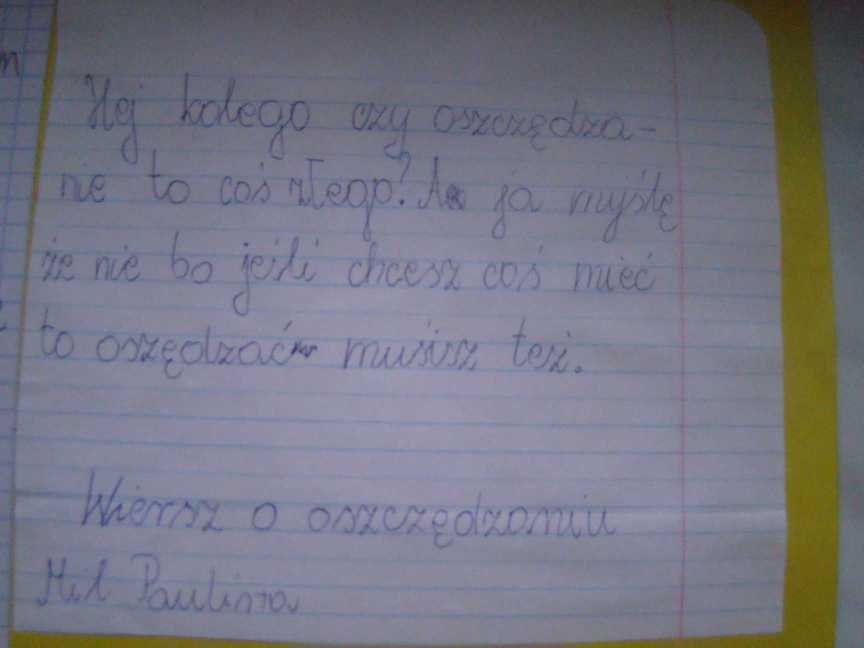 Hej kolego czy oszczędza-
nie to coś złego? A ja myślę
że nie bo jeśli chcesz coś mieć
to oszędzać musisz też.
Wiersz o oszczędzaniu
Paulina